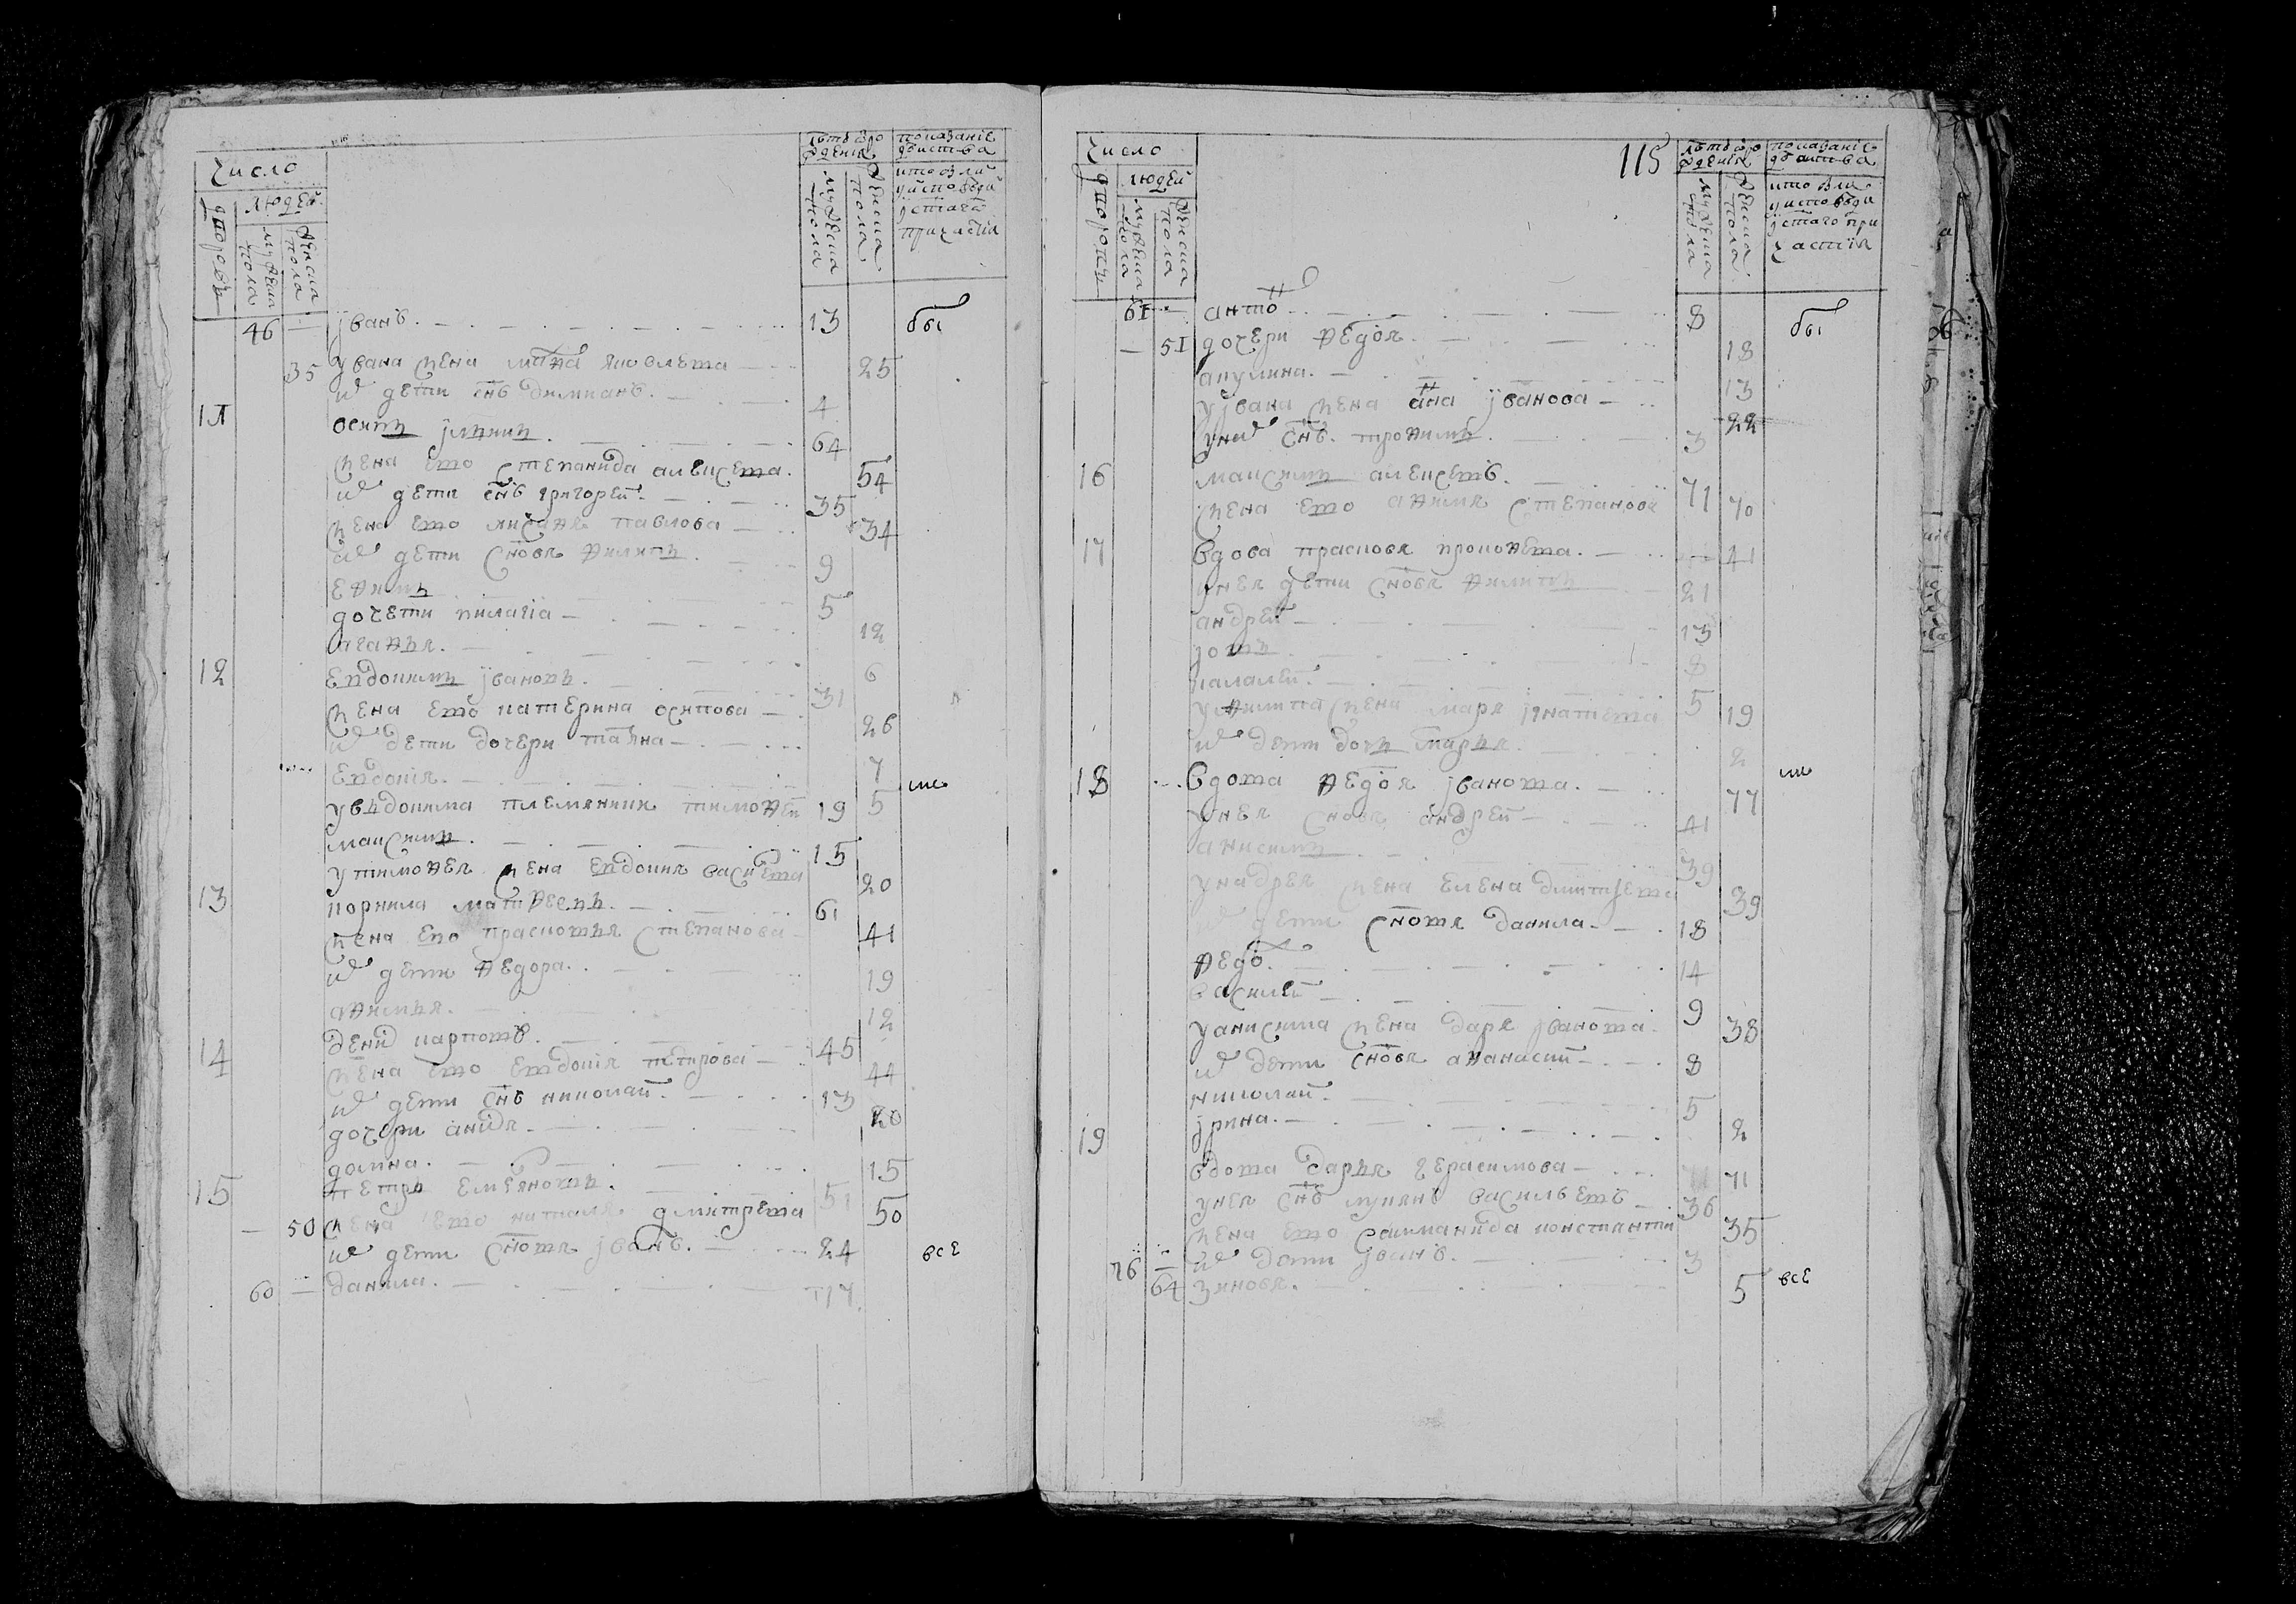 Число
людей
дворовъ
мужеска пола
женска пола
лѣтъ от рождения
мужеска пола
женска пола
показание действа
кто были у исповеди и святаго причастия
46 — иванъ 13 бы
35 у ивана жена яковлева 25
их дети снъ 4
11 осипъ ильинъ 64
жена ево степанида алексева 54
их дети снъ григорей 35
жена ево павлова 34
их дети сновя филипъ 9
ефимъ 5
дочети пилагіа 12
агафья 6
12 евдокимъ ивановъ 31
жена ево катерина осипова 26
их дети дочери татяна 7
евдокия 5
у евдокима племяники тимофей 19
максимъ 15
у тимофея жена евдокия василева 20
13 корнила матвеевъ 61
жена ево прасковья степанова 41
их дети федора 19
афимья 12
14 денид карповъ 45
жена ево евдокия петрова 44
их дети снъ николай 13
дочери 20
домна 15
15 петръ емеяновъ 51
— 50 жена ево наталя дмитрева 50
их дети сновя иванъ 24 все
60 — данила 17
115
Число
людей
мужеска пола
женска пола
лѣтъ от рождения
мужеска пола
женска пола
показание действа
кто были у исповеди и святаго причастия
61 — антон 8 бы
— 51 дочери федоя 18
акулина 13
у ивана жена анна иванова 22
у них снъ трофимъ 3
16 максимъ алексевъ 71
жена ево афимя степанова 70
17 вдова прасковя прокофева 41
у нея дети сновя филипъ 21
андрей 13
8
5
у филипа жена маря игнатева 19
их дети дочь марья 2
18 вдова федоя иванова 77
у нея сновя андрей 41
анисимъ 39
у надрея жена елена дмитрева 39
их дети сновя данила 18
федор 14
василей 9
у анисима жена даря иванова 38
их дети сновя афанасий 8
николай 5
ирина 2
19 вдова дарья герасимова 71
у нея снъ лукянъ василъевъ 36
жена ево константи 35
их дети иванъ 3
76 — 64 зиновя 5 все